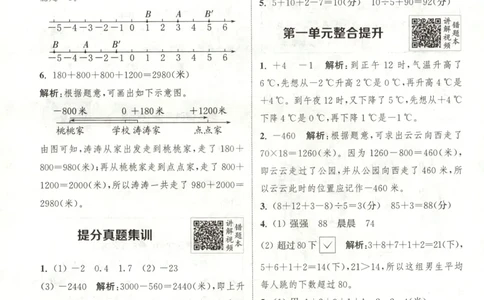 B A B′
-5-4-3-2-1 0 1 2 3 4 5
B A B′
-5-4-3-2-1 0 1 2 3 4 5
6. 180+800+800+1200=2980(米)
解析:根据题意,可画出如下示意图。
-800米 0 +180米 +1200米
桃桃家 学校 涛涛家 点点家
由图可知,涛涛从家出发走到桃桃家,走了 180+
800=980(米);再从桃桃家走到点点家,走了 800+
1200=2000(米),所以涛涛一共走了 980+2000=
2980(米)。
提分真题集训
讲解视频
错题本
1. (1) -2 0.4 1.7 (2) -23
(3) -2440 解析:3000-560=2440(米),即上升
5. 5+10+2-7=10(分) 10÷5+90=92(分)
第一单元整合提升
讲解视频
错题本
1. +4 -1 解析:到正午 12 时,气温升高了
6℃,先想从-2℃升高2℃是0℃,再升高4℃是
+4℃。到午夜12时,又下降了5℃,先想从+4℃
下降4℃是0℃,再下降1℃是-1℃。
2. -460 解析:根据题意,可求出云云向西走了
70×18=1260(米)。因为 1260-800=460(米),
即云云走过了公园,并从公园向西走了460米,所
以云云此时的位置应记作-460米。
3. (8+12+3-8)÷5=3(分) 85+3=88(分)
4. (1) 强强 88 晨晨 74
(2) 超过80下 ✓ 解析:3+8+7+1+2=21(下),
5+6+1+2=14(下),21>14,所以这组男生平均
每人跳的下数超过80。